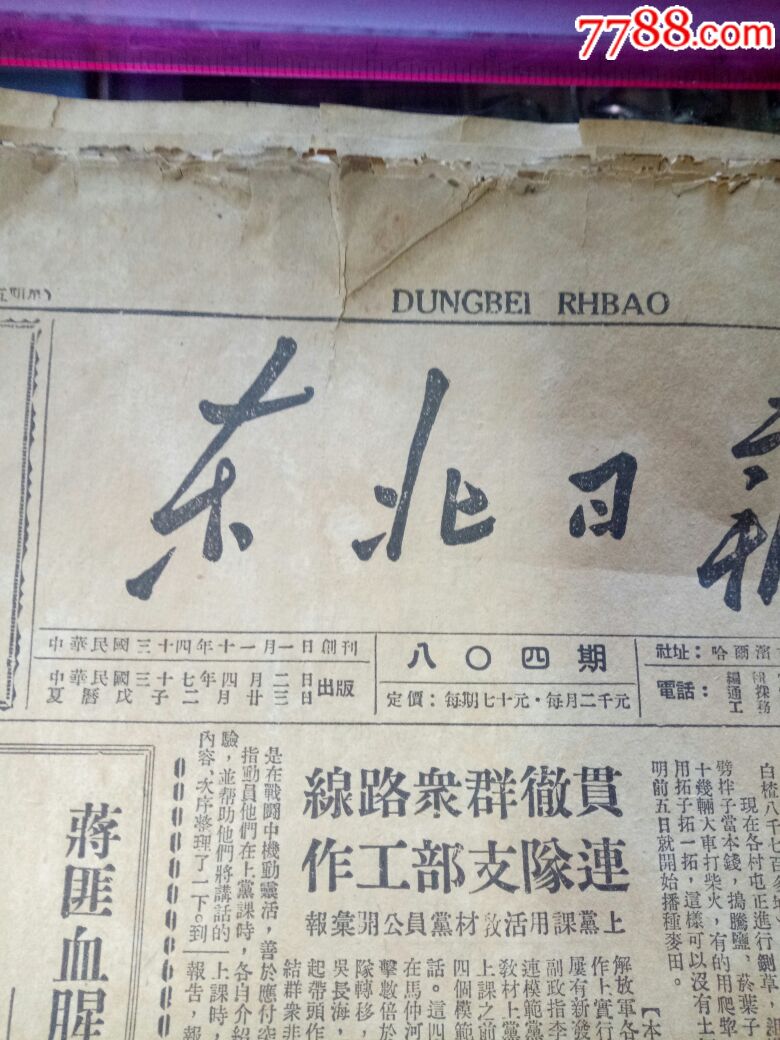 7788.com
DUNGBEI RHBAO
东北日報
中華民國三十四年十一月一日創刊
中華民國三十七年四月二日
夏曆戊子二月廿三日
出版
八〇四期
定價：每期七十元·每月二千元
社址：哈爾濱
電話：
貫徹群衆路線
連隊支部工作
上黨課用活教材黨員公開彙報
蔣匪血腥
現在各村屯正進行鍘草，
劈拌子當本錢，搗騰鹽、菸葉子
十幾輛大車打柴火，有的用爬犁
用拓子拓一拓，這樣可以沒有土
明前五日就開始播種麥田。
【本
解放軍各
作上實行
屢有新發
副政指李
連模範黨
教材上黨
上課之前
四個模範
話。這四
在馬仲河
擊數倍於
隊轉移，
吳長海，
起帶頭作
結群衆非
是在戰闘中機動靈活，善於應付突
指動員他們在上黨課時，各自介紹
驗，並帮助他們將講話的
內容、次序整理了一下。到
上課時，
報告，報